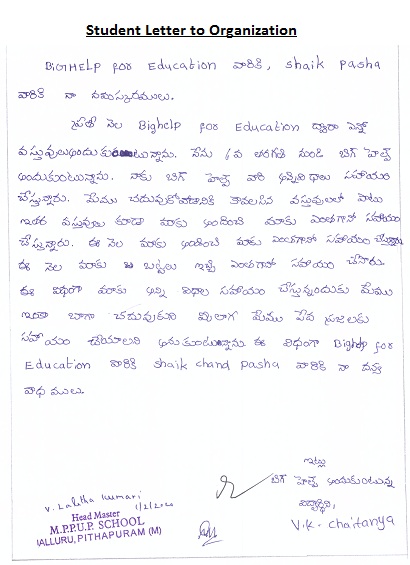 Student Letter to Organization
BIGHELP for Education వారికి, shaik pasha
వారికి నా నమస్కారములు.
ప్రతి నెల Bighelp for Education ద్వారా ఎన్నో
వస్తువులు అందుకుంటున్నాను. నేను 6వ తరగతి నుండి బిగ్ హెల్ప్
అందుకుంటున్నాను. నాకు బిగ్ హెల్ప్ వారి అన్నివిధాలు సహాయం
చేస్తున్నారు. మేము చదువుకోవడానికి కావలసిన వస్తువులతో పాటు
ఇతర వస్తువులు కూడా మాకు అందించి మాకు ఎంతగానో సహాయం
చేస్తున్నారు. ఈ నెల మాకు అందించి మాకు ఎంతగానో సహాయం చేస్తున్నారు
ఈ నెల మాకు బట్టలు ఇచ్చి ఎంతగానో సహాయం చేసారు.
ఈ విధంగా మాకు అన్ని విధాల సహాయం చేస్తున్నందుకు మేము
ఇంకా బాగా చదువుకుని మీలాగ మేము పేద ప్రజలకు
సహాయం చేయాలని అనుకుంటున్నాను ఈ విధంగా Bighelp for
Education వారికి shaik chand pasha వారికి నా
ఇట్లు
బిగ్ హెల్ప్ అందుకుంటున్న
విద్యార్థిని,
V.K. chaitanya
V. Lalitha kumari
Head Master
M.P.P.U.P. SCHOOL
PITHAPURAM (M)